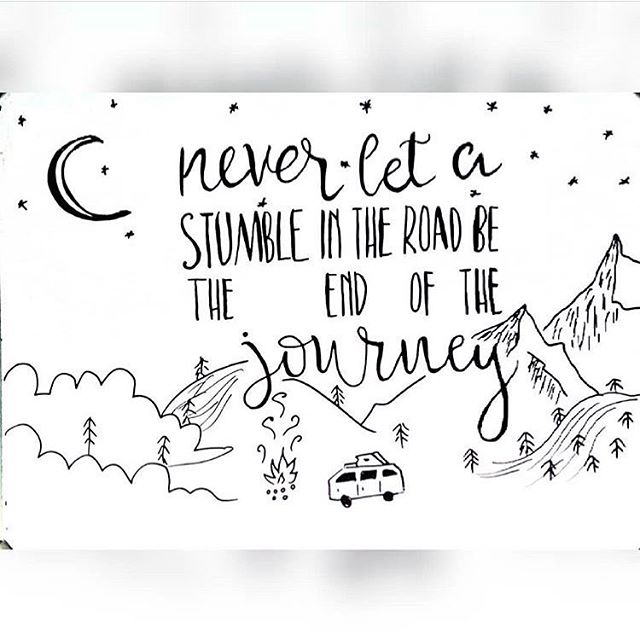 never let a
STUMBLE IN THE ROAD BE
THE END OF THE
journey